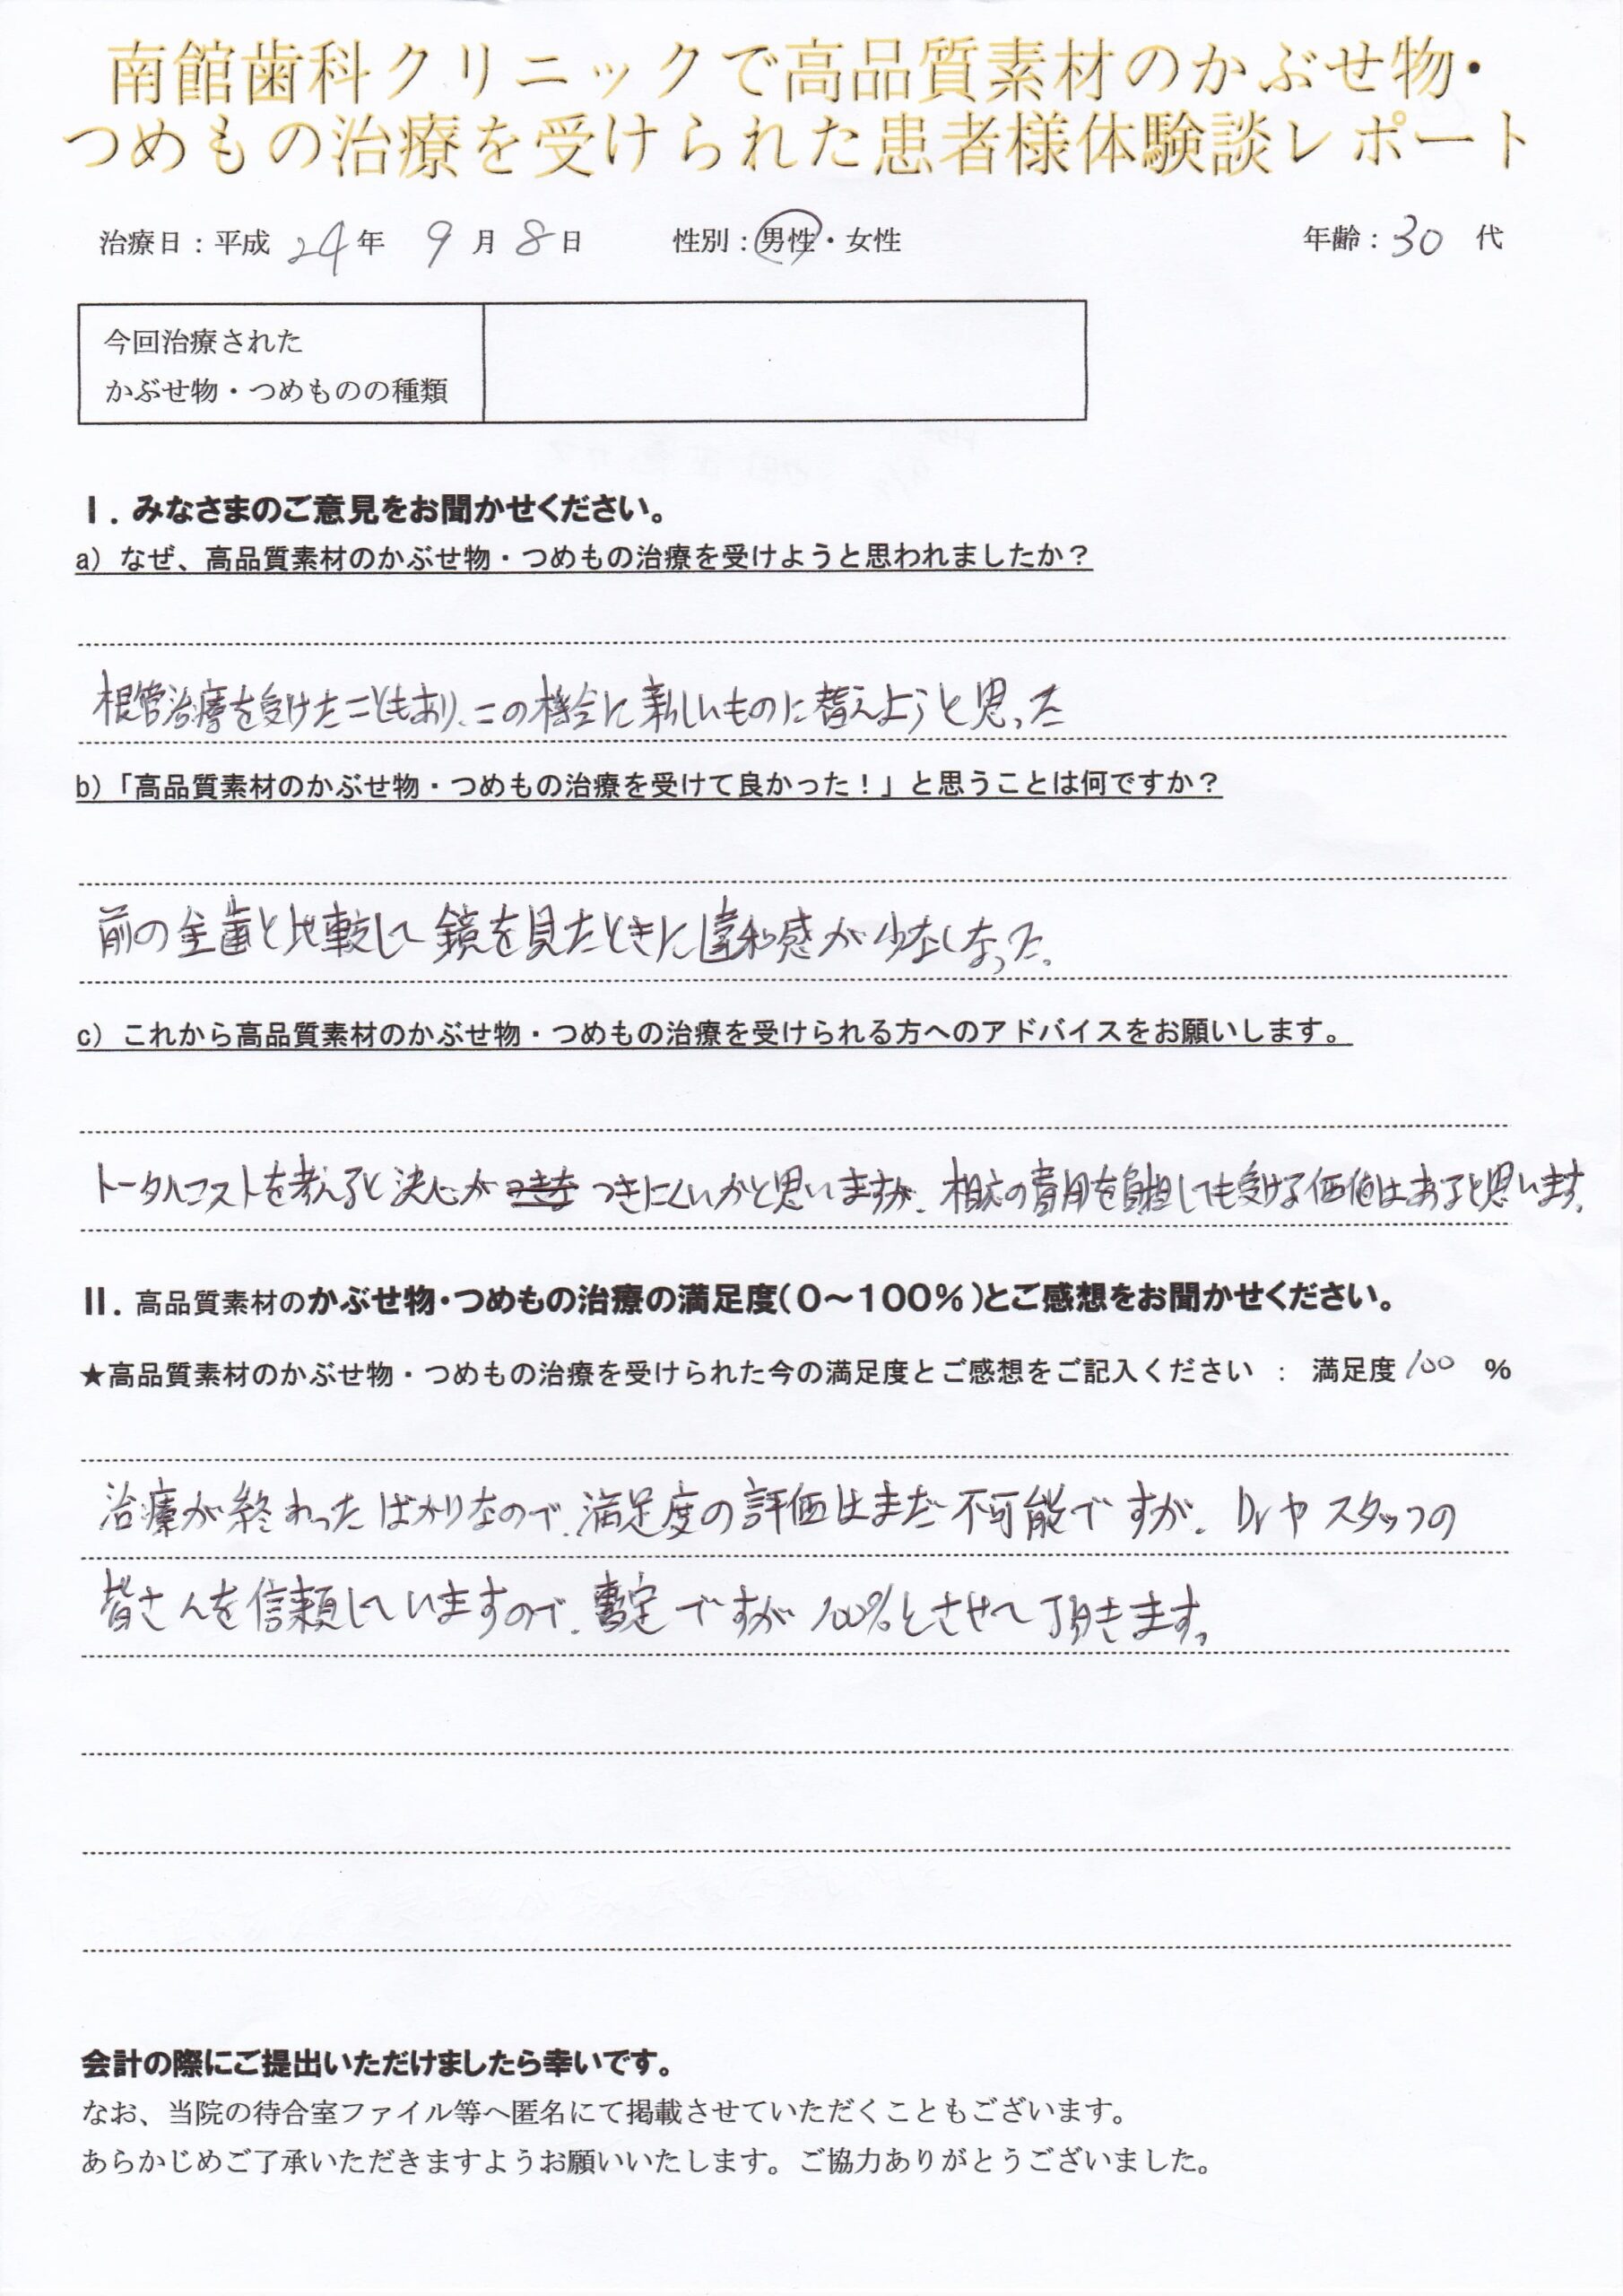 南館歯科クリニックで高品質素材のかぶせ物・
つめもの治療を受けられた患者様体験談レポート
治療日：平成 24 年 9 月 8 日 性別：男性・女性 年齢：30 代
今回治療された
かぶせ物・つめものの種類
Ⅰ. みなさまのご意見をお聞かせください。
a) なぜ、高品質素材のかぶせ物・つめもの治療を受けようと思われましたか？
根管治療を受けたこともあり、この機会に新しいものに替えようと思った
b)「高品質素材のかぶせ物・つめもの治療を受けて良かった！」と思うことは何ですか？
前の金歯と比較して鏡を見たときに違和感が少なくなった。
c) これから高品質素材のかぶせ物・つめもの治療を受けられる方へのアドバイスをお願いします。
トータルコストを考えると決心が つきにくいかと思いますが、相応の費用を負担しても受ける価値はあると思います。
Ⅱ. 高品質素材のかぶせ物・つめもの治療の満足度（０～１００％）とご感想をお聞かせください。
★高品質素材のかぶせ物・つめもの治療を受けられた今の満足度とご感想をご記入ください ： 満足度 100 ％
治療が終わったばかりなので、満足度の評価はまだ不可能ですが、Drやスタッフの
皆さんを信頼していますので、暫定ですが100%とさせて頂きます。
会計の際にご提出いただけましたら幸いです。
なお、当院の待合室ファイル等へ匿名にて掲載させていただくこともございます。
あらかじめご了承いただきますようお願いいたします。ご協力ありがとうございました。